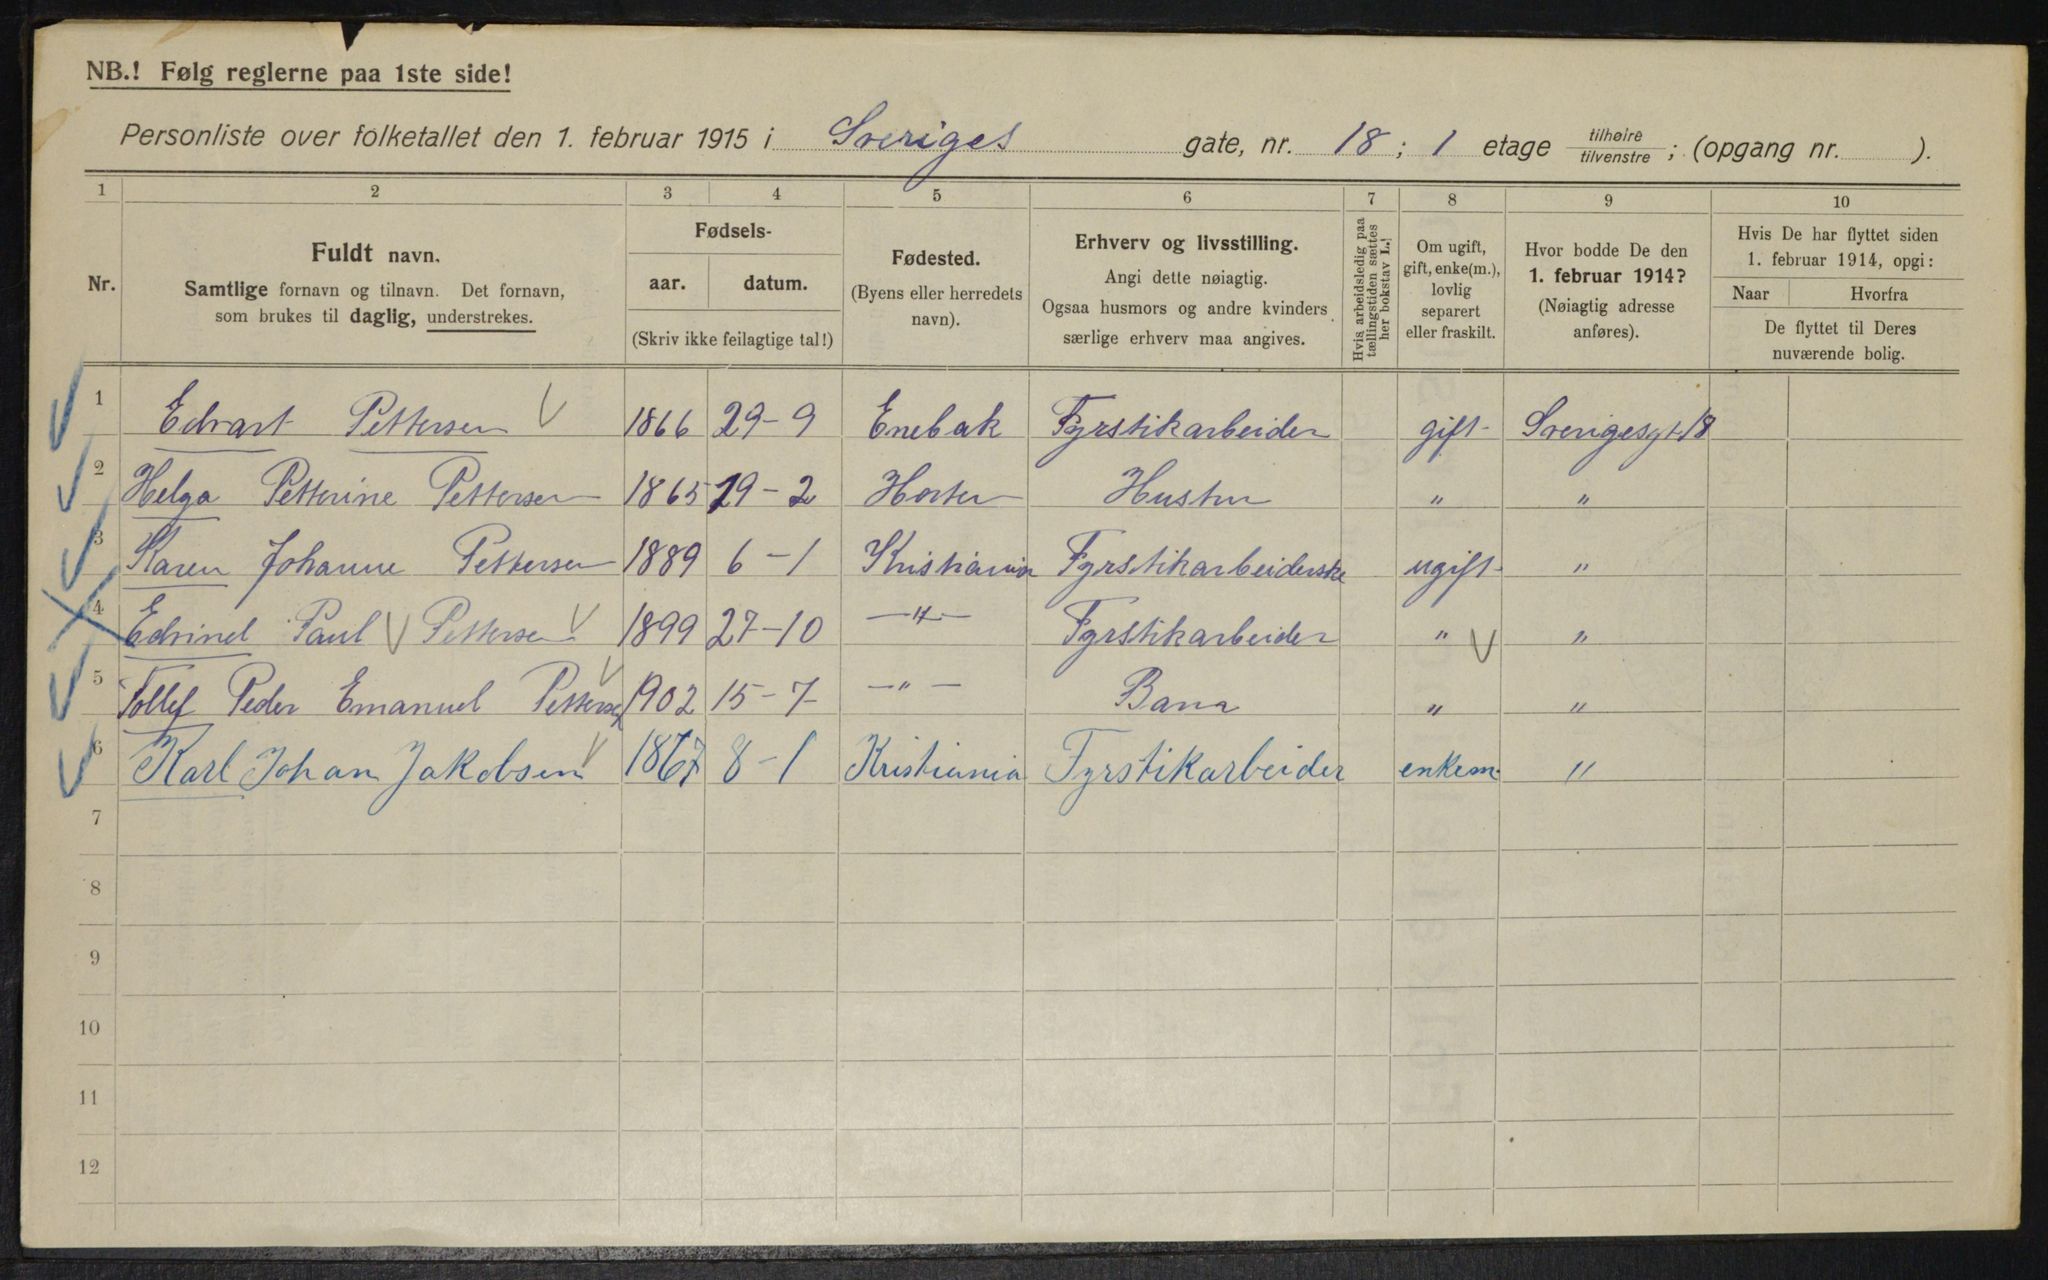 NB.! Følg reglerne paa 1ste side!
Personliste over folketallet den 1. februar 1915 i Sveriges gate, nr. 18 ; 1 etage tilhøire / tilvenstre ; (opgang nr. ).
1 2 3 4 5 6 7 8 9 10
Nr.
Fuldt navn.
Samtlige fornavn og tilnavn. Det fornavn,
som brukes til daglig, understrekes.
Fødsels-
aar. datum.
(Skriv ikke feilagtige tal!)
Fødested.
(Byens eller herredets
navn).
Erhverv og livsstilling.
Angi dette nøiagtig.
Ogsaa husmors og andre kvinders
særlige erhverv maa angives.
Hvis arbeidsledig paa
tællingstiden sættes
her bokstav L.!
Om ugift,
gift, enke(m.),
lovlig
separert
eller fraskilt.
Hvor bodde De den
1. februar 1914?
(Nøiagtig adresse
anføres).
Hvis De har flyttet siden
1. februar 1914, opgi:
Naar Hvorfra
De flyttet til Deres
nuværende bolig.
1 Edvart Pettersen 1866 29-9 Enebak Fyrstikarbeider gift Sverigesgt 18
2 Helga Petterine Pettersen 1865 19-2 Horten Hustru " "
3 Karen Johanne Pettersen 1889 6-1 Kristiania Fyrstikarbeiderske ugift "
4 Edvinel Paul Pettersen 1899 27-10 -"- Fyrstikarbeider " "
5 Tollef Peder Emanuel Pettersen 1902 15-7 -"- Barn " "
6 Karl Johan Jakobsen 1867 8-1 Kristiania Fyrstikarbeider enkem. "
7
8
9
10
11
12